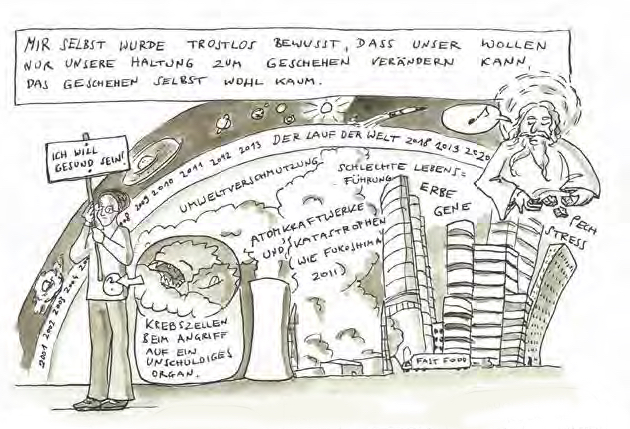 MIR SELBST WURDE TROSTLOS BEWUSST, DASS UNSER WOLLEN
NUR UNSERE HALTUNG ZUM GESCHEHEN VERÄNDERN KANN,
DAS GESCHEHEN SELBST WOHL KAUM.
ICH WILL
GESUND SEIN!
2001 2002 2003 2004
2009 2010 2011 2012 2013 DER LAUF DER WELT 2018 2019 2020
UMWELTVERSCHMUTZUNG
SCHLECHTE LEBENS=
FÜHRUNG
ERBE
GENE
PECH
STRESS
ATOMKRAFTWERKE
UND KATASTROPHEN
(WIE FUKUSHIMA
2011)
KREBSZELLEN
BEIM ANGRIFF
AUF EIN
UNSCHULDIGES
ORGAN.
FAST FOOD